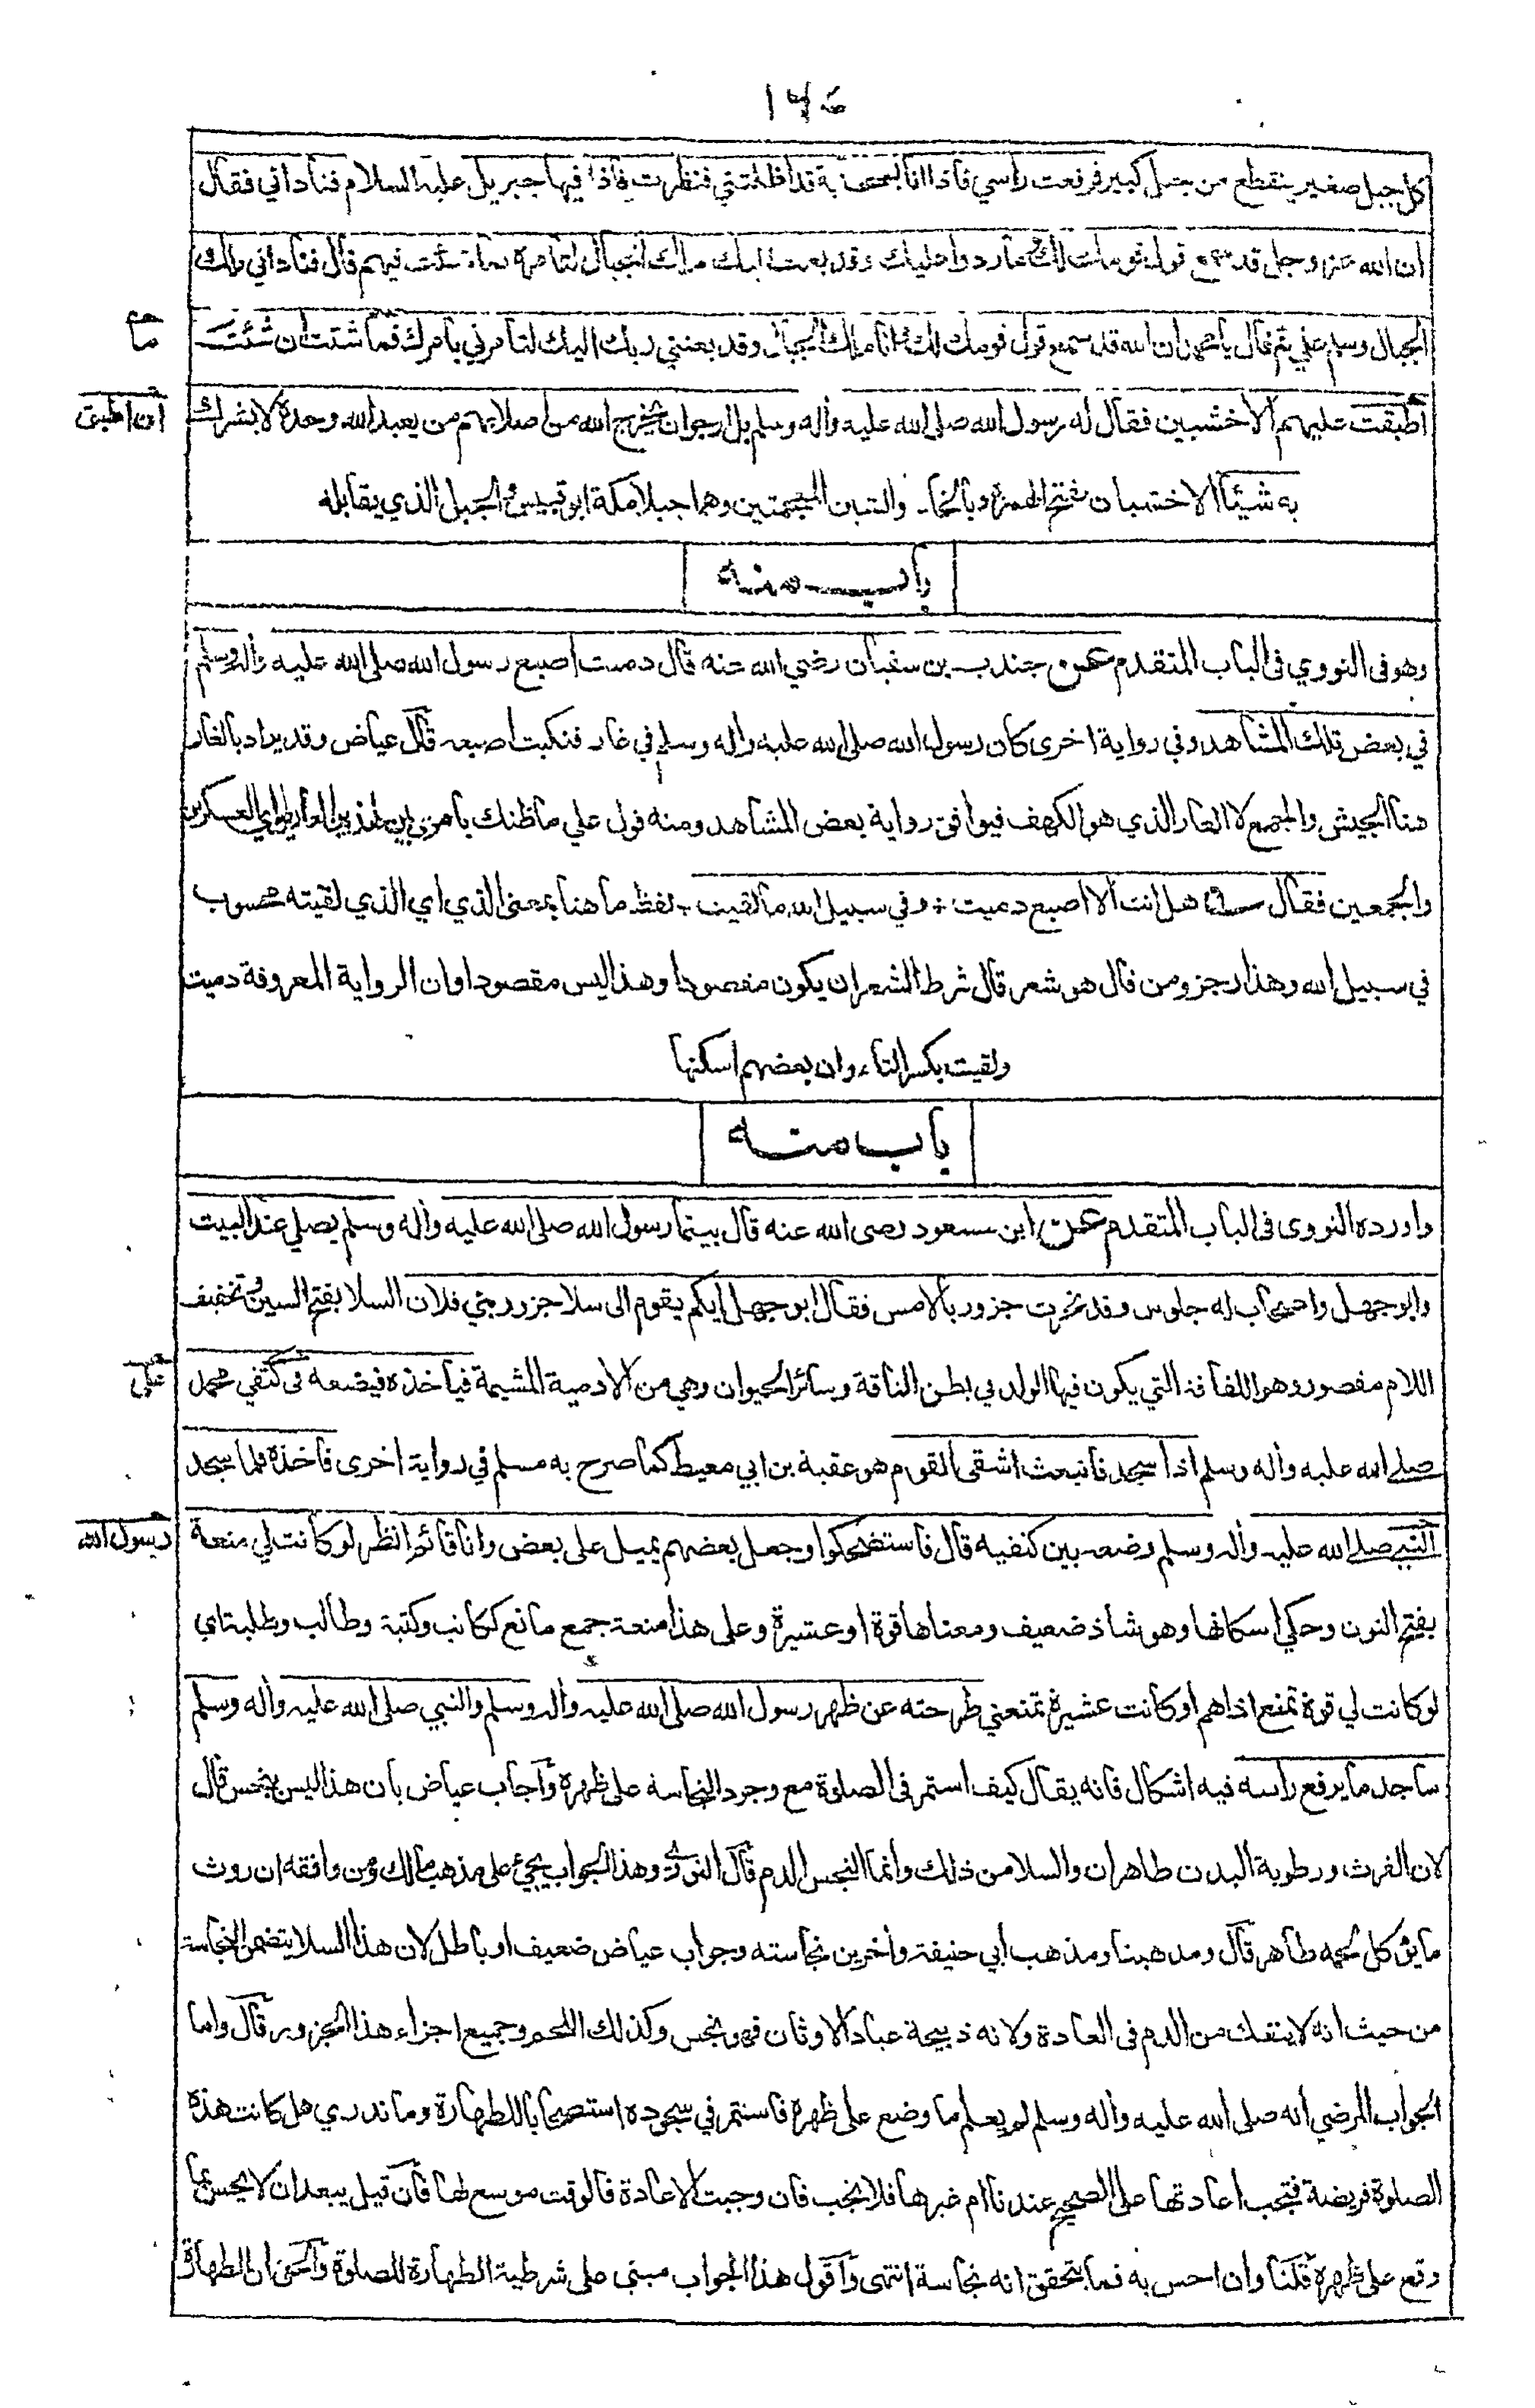 كل جبل صغير ينقطع من جبل كبير فرفعت راسي فاذا انا بسحابة قد اظلتني فنظرت فاذا فيها جبريل عليه السلام فناداني فقال
ان الله عز وجل قد سمع قول قومك لك وما ردوا عليك وقد بعث اليك ملك الجبال لتامره بما شئت فيهم قال فناداني ملك
الجبال وسلم علي ثم قال يا محمد ان الله قد سمع قول قومك لك وانا ملك الجبال وقد بعثني ربك اليك لتامرني بامرك فما شئت ان شئت
ما
اطبقت عليهم الاخشبين فقال له رسول الله صلى الله عليه وآله وسلم بل ارجو ان يخرج الله من اصلابهم من يعبد الله وحده لا يشرك
ان اطبق
به شيئا الاخشبان بفتح الهمزة وبالخاء والشين المعجمتين وهما جبلا مكة ابو قبيس والجبل الذي يقابله
باب منه
وهو في النووي في الباب المتقدم عن جندب بن سفيان رضي الله عنه قال دميت اصبع رسول الله صلى الله عليه وآله وسلم
في بعض تلك المشاهد وفي رواية اخرى كان رسول الله صلى الله عليه وآله وسلم في غار فنكبت اصبعه قال عياض وقد يراد بالغار
هنا الجيش والجمع لا الغار الذي هو الكهف فيوافق رواية بعض المشاهد ومنه قول علي ما ظنك بامرئ بين هذين الغارين اي العسكرين
والجمعين فقال هل انت الا اصبع دميت وفي سبيل الله ما لقيت لفظ ما هنا بمعنى الذي اي الذي لقيته محسوب
في سبيل الله وهذا رجز ومن قال هو شعر قال شرط الشعر ان يكون مقصودا وهذا ليس مقصودا وان الرواية المعروفة دميت
ولقيت بكسر التاء وان بعضهم اسكنها
باب منه
واورده النووى في الباب المتقدم عن ابن مسعود رضى الله عنه قال بينما رسول الله صلى الله عليه وآله وسلم يصلي عند البيت
وابو جهل واصحاب له جلوس وقد نحرت جزور بالامس فقال ابو جهل ايكم يقوم الى سلا جزور بني فلان السلا بفتح السين وتخفيف
اللام مقصور وهو اللفافة التي يكون فيها الولد في بطن الناقة وسائر الحيوان وهي من الآدمية المشيمة فياخذه فيضعه في كتفي محمد
على
صلى الله عليه وآله وسلم اذا سجد فانبعث اشقى القوم هو عقبة بن ابي معيط كما صرح به مسلم في رواية اخرى فاخذه فلما سجد
النبي صلى الله عليه وآله وسلم وضعه بين كتفيه قال فاستضحكوا وجعل بعضهم يميل على بعض وانا قائم انظر لو كانت لي منعة
رسول الله
بفتح النون وحكي اسكانها وهو شاذ ضعيف ومعناها قوة او عشيرة وعلى هذا منعة جمع مانع ككاتب وكتبة وطالب وطلبة اي
لو كانت لي قوة تمنع اذاهم او كانت عشيرة تمنعني طرحته عن ظهر رسول الله صلى الله عليه وآله وسلم والنبي صلى الله عليه وآله وسلم
ساجد ما يرفع راسه فيه اشكال فانه يقال كيف استمر في الصلوة مع وجود النجاسة على ظهره وآجاب عياض بان هذا ليس بنجس قال
لان الفرث ورطوبة البدن طاهران والسلا من ذلك وانما النجس الدم قال النووي وهذا الجواب يجيء على مذهب مالك ومن وافقه ان روث
ما يؤكل لحمه طاهر قال ومذهبنا ومذهب ابي حنيفة وآخرين نجاسته وجواب عياض ضعيف او باطل لان هذا السلا يتضمن النجاسة
من حيث انه لا ينفك من الدم في العادة ولانه ذبيحة عباد الاوثان فهو نجس وكذلك اللحم وجميع اجزاء هذا الجزور قال واما
الجواب المرضي انه صلى الله عليه وآله وسلم لم يعلم ما وضع على ظهره فاستمر في سجوده استصحابا للطهارة وما ندري هل كانت هذه
الصلوة فريضة فتجب اعادتها على الصحيح عندنا ام غيرها فلا تجب فان وجبت الاعادة فالوقت موسع لها فان قيل يبعد ان لا يحس بما
وقع على ظهره قلنا وان احس به فما يتحقق انه نجاسة انتهى وآقول هذا الجواب مبني على شرطية الطهارة للصلوة والحق ان الطهارة